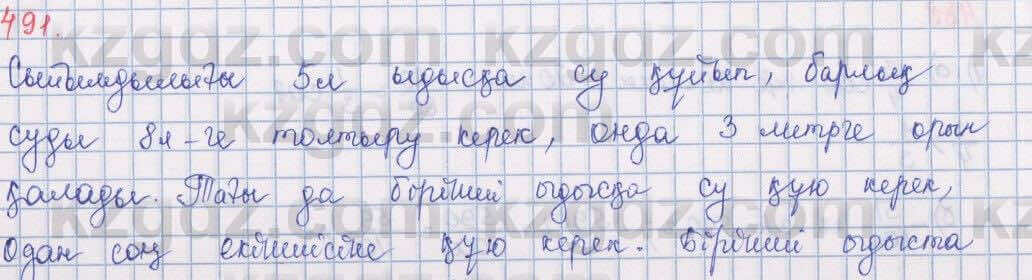 491.
Сыйымдылығы 5л ыдысқа су құйып, барлық
суды 8л-ге толтыру керек, онда 3 литрге орын
қалады. Тағы да бірінші ыдысқа су құю керек,
Одан соң екіншісіне құю керек. Бірінші ыдыста